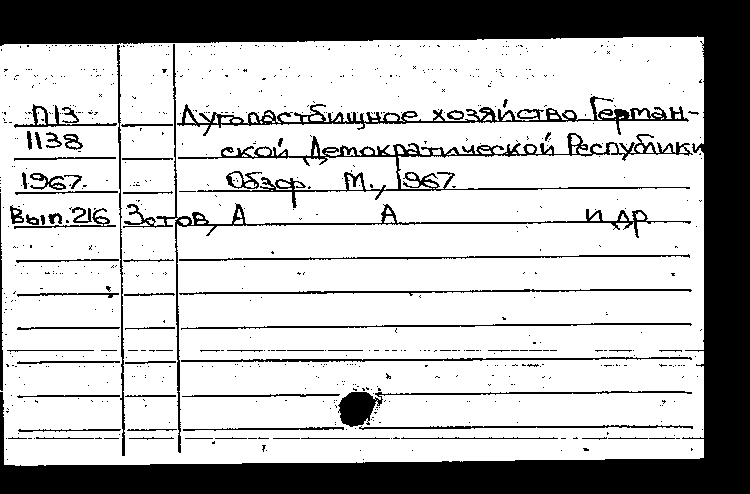 П13 Лугопастбищное хозяйство Герман-
1138 ской Демократической Республики
1967. Обзор. М., 1967.
Вып.216 Зотов, А А и др.